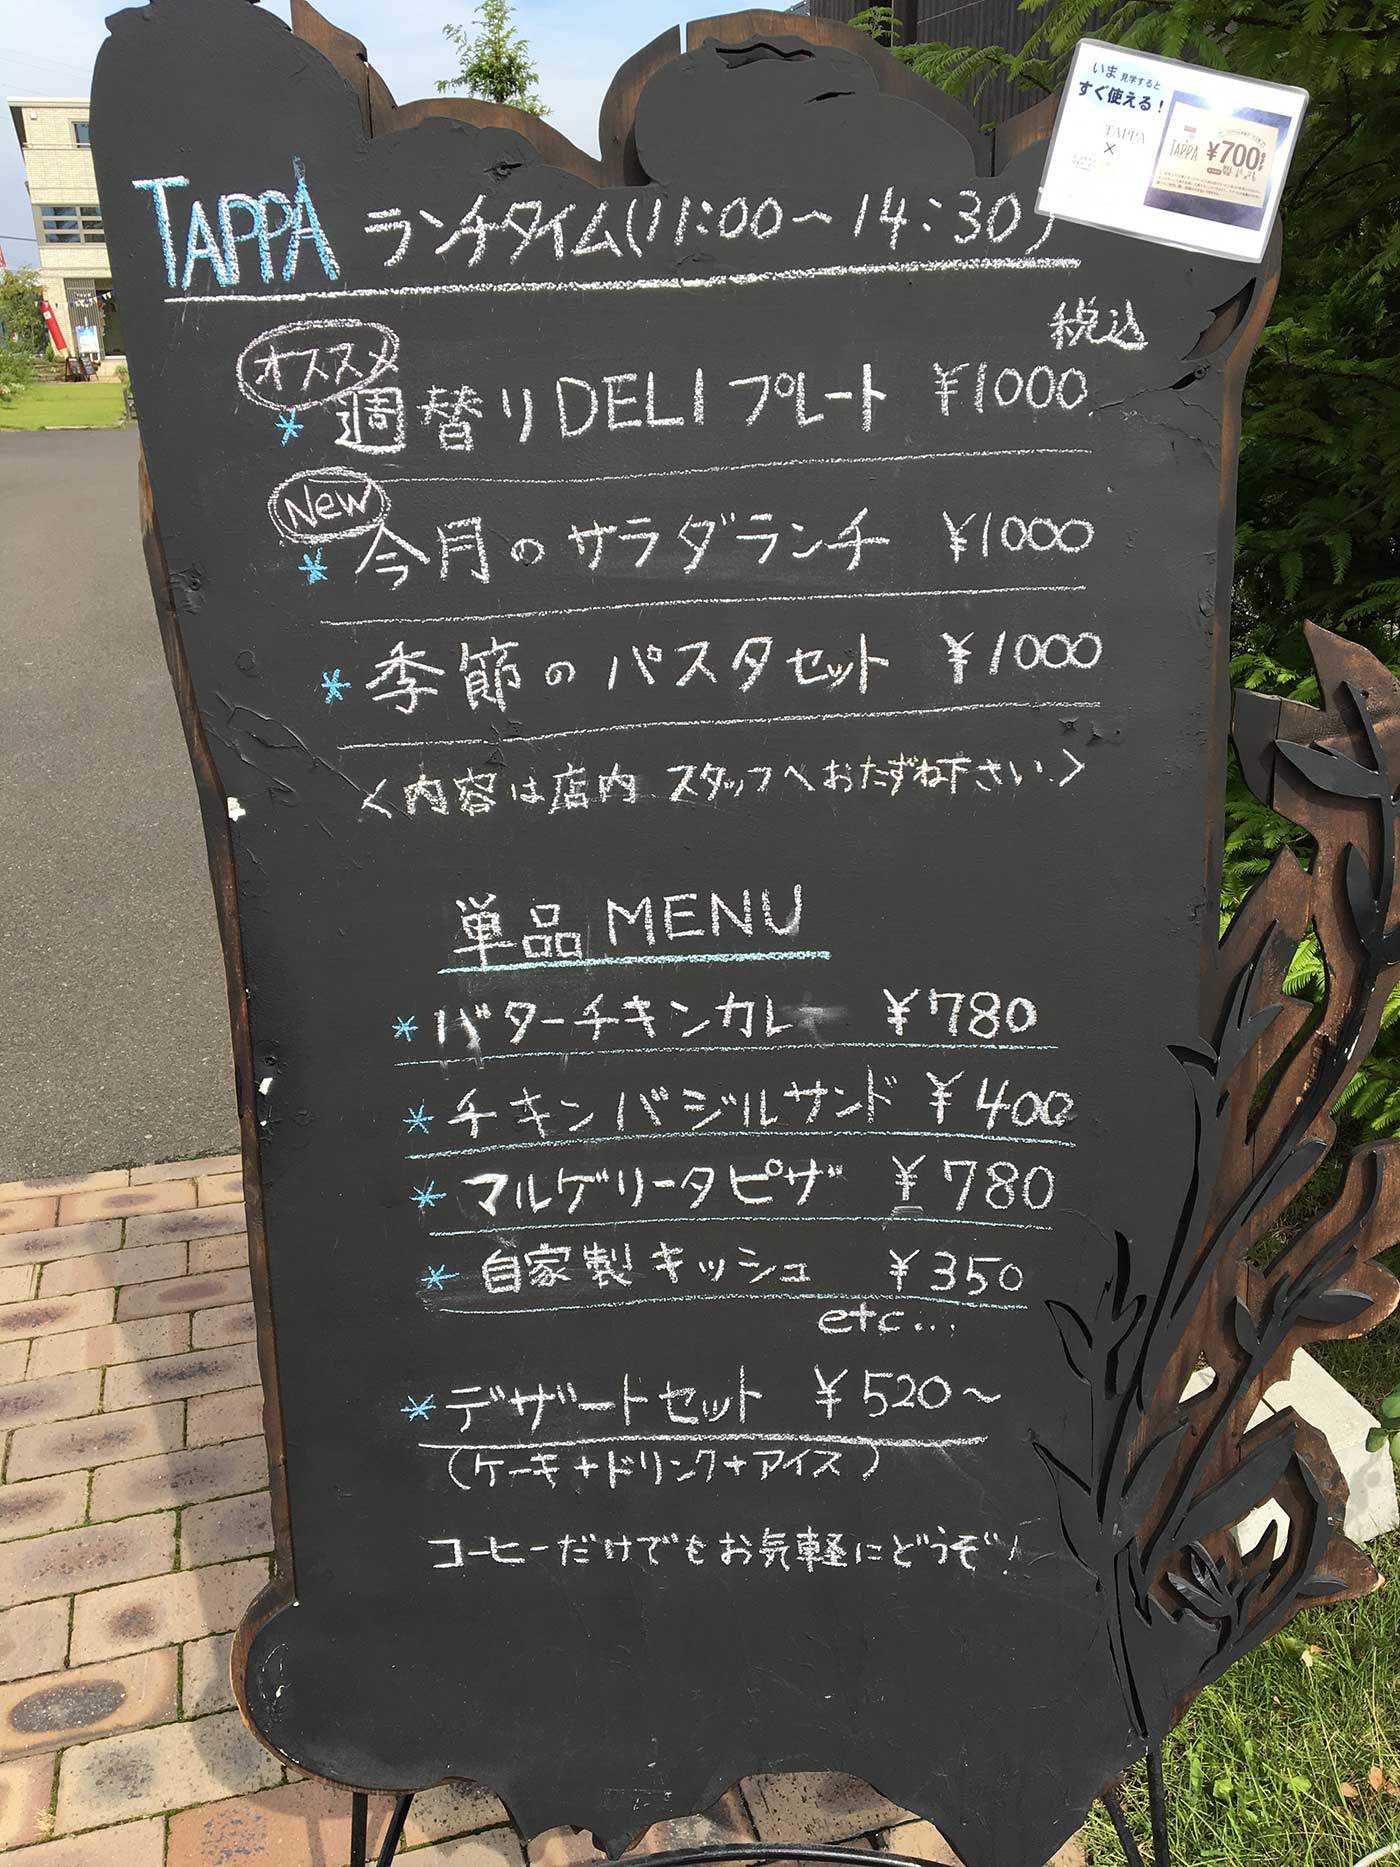 いま 見学すると
すぐ使える!
TAPPA
×
TAPPA ¥700
TAPPA ランチタイム(11:00~14:30)
税込
オススメ
* 週替りDELIプレート ¥1000.
New
* 今月のサラダランチ ¥1000
* 季節のパスタセット ¥1000
<内容は店内スタッフへおたずね下さい.>
単品MENU
* バターチキンカレー ¥780
* チキンバジルサンド ¥400
* マルゲリータピザ ¥780
* 自家製キッシュ ¥350
etc...
* デザートセット ¥520~
(ケーキ+ドリンク+アイス)
コーヒーだけでもお気軽にどうぞ!